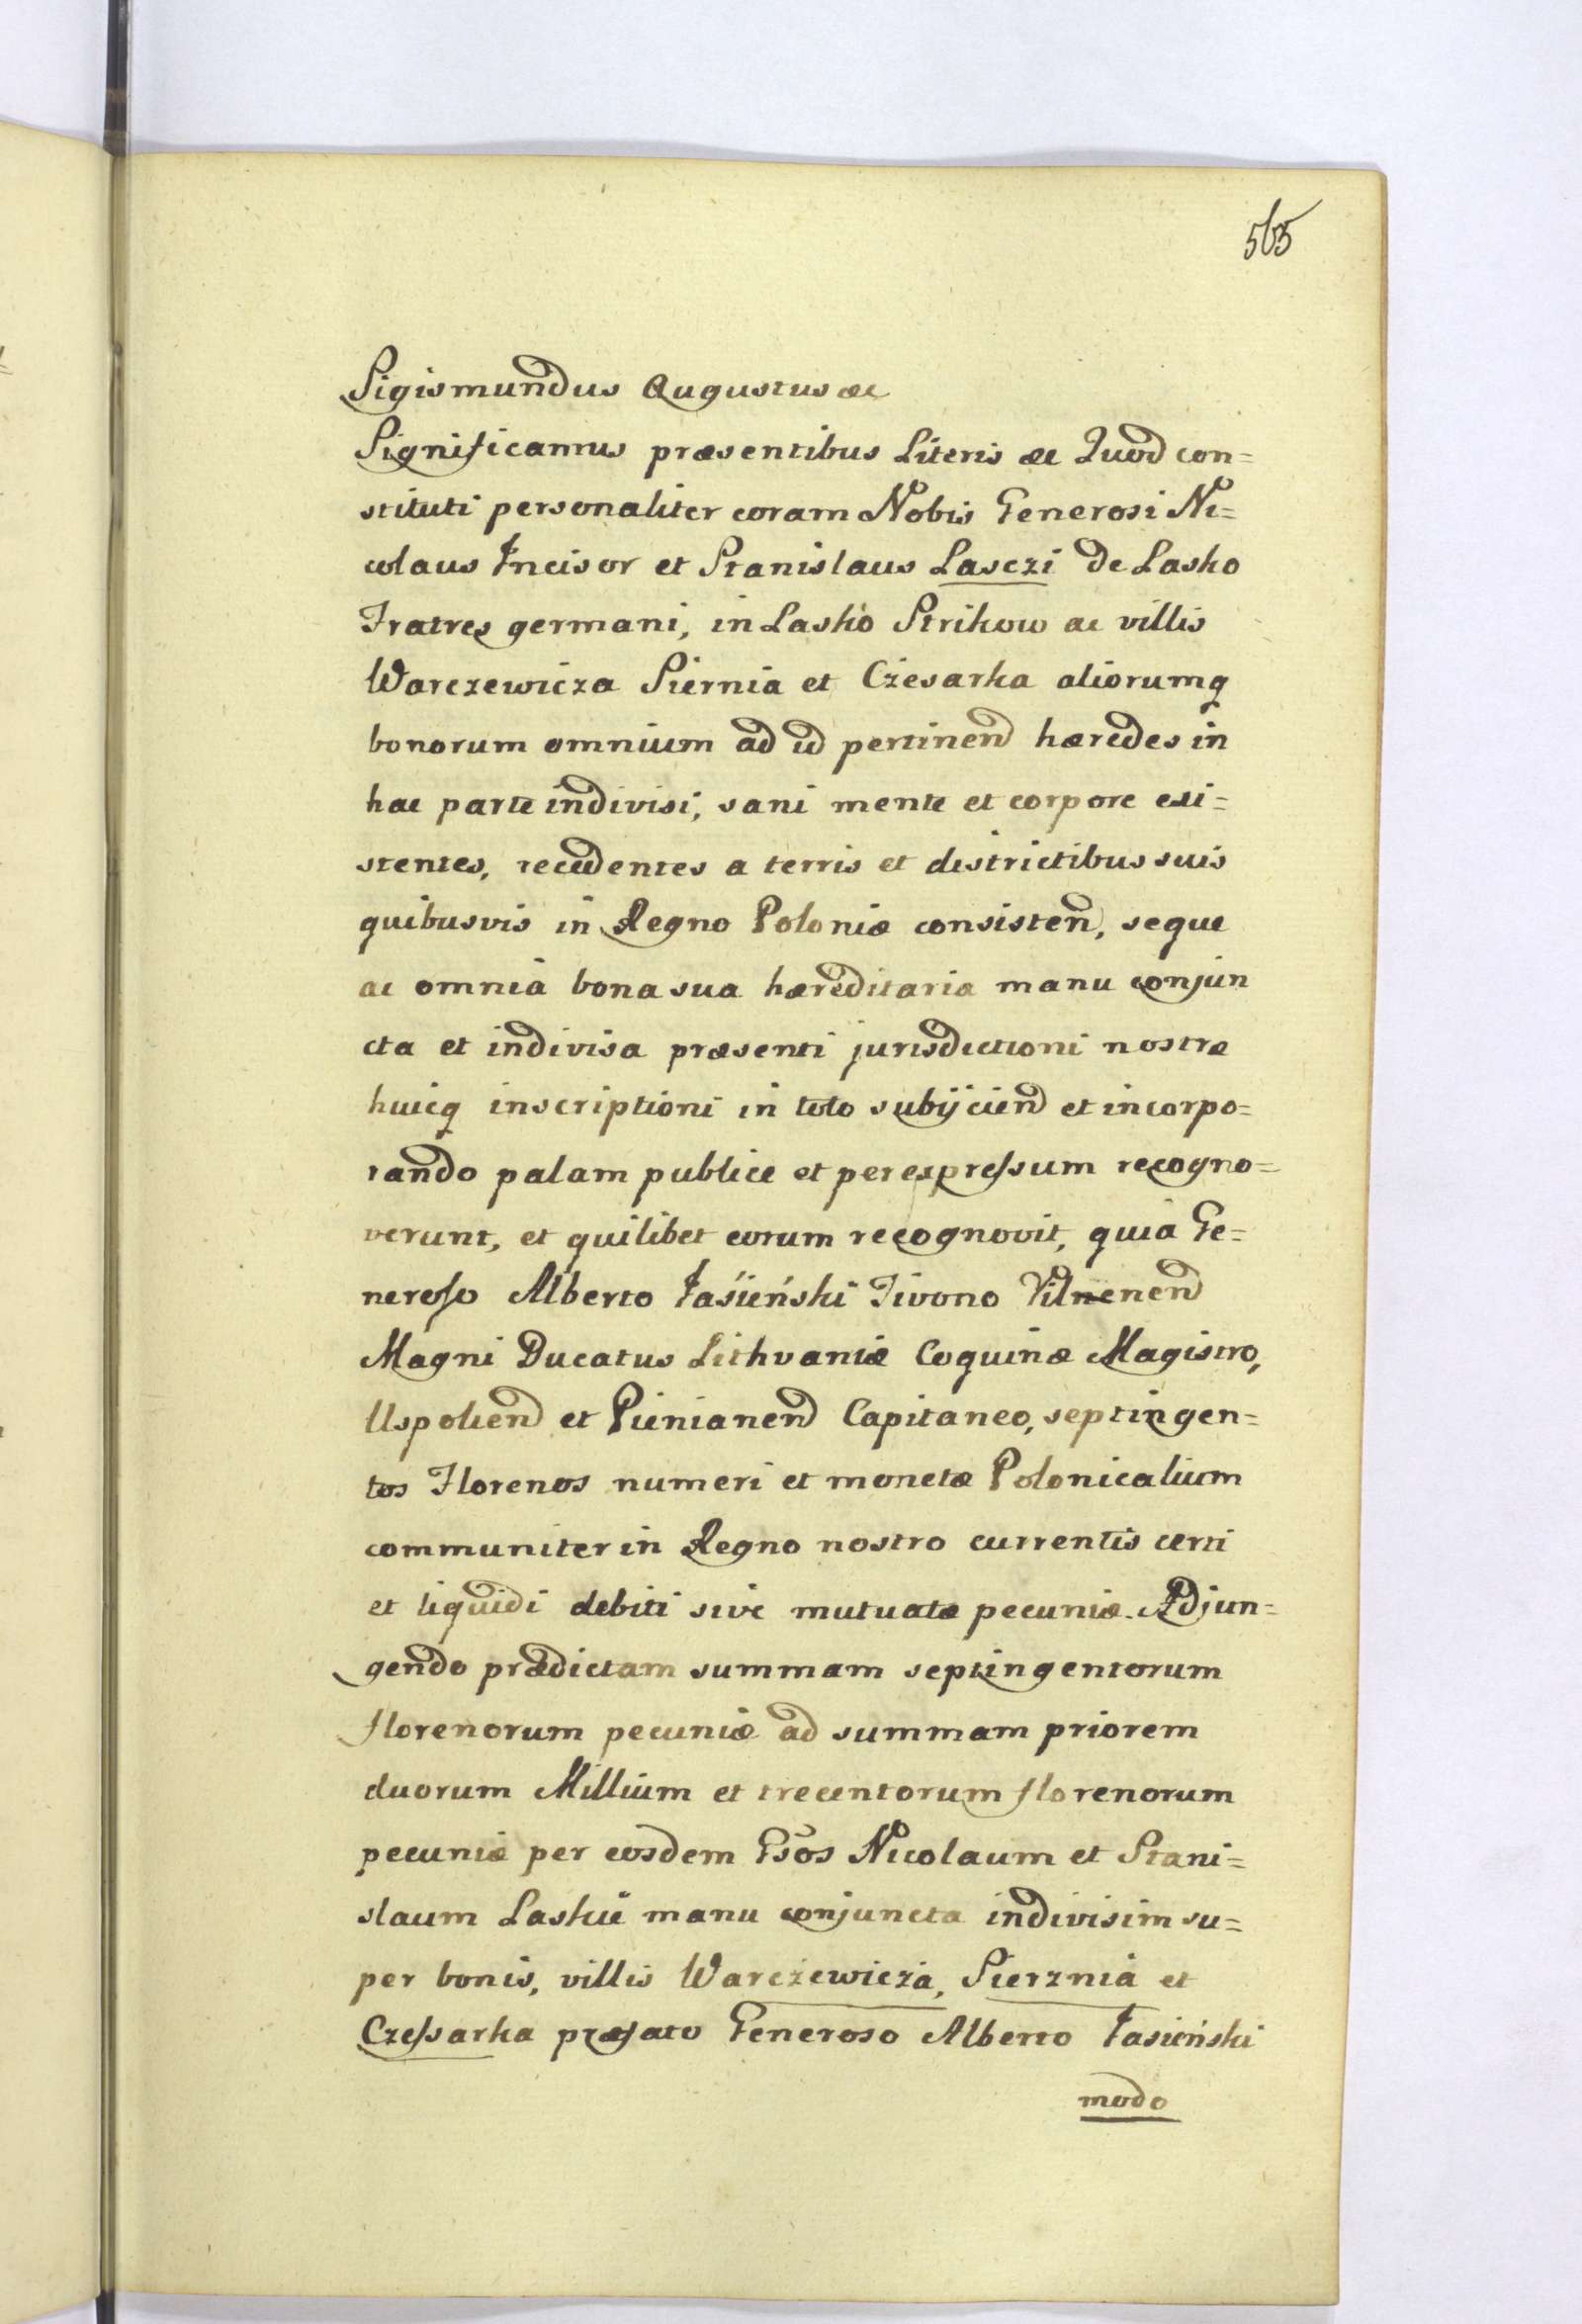 565
Sigismundus Augustus ac
Significamus præsentibus Literis ac Quod con=
stituti personaliter coram Nobis Generosi Ni=
colaus Incisor et Stanislaus Lasczi de Lasko
Fratres germani, in Lasko Strikow ac villis
Warczewicza Siernia et Czesarka aliorumq
bonorum omnium ad id pertinen hæredes in
hac parte indivisi, sani mente et corpore exi=
stentes, recedentes a terris et districtibus suis
quibusvis in Regno Poloniæ consisten, seque
ac omnia bona sua hæreditaria manu conjun
cta et indivisa præsenti jurisdictioni nostræ
huicq inscriptioni in toto subijcien et incorpo=
rando palam publice et per expressum recogno=
verunt, et quilibet eorum recognovit, quia Ge=
neroso Alberto Jasieński Tivono Vilnenen
Magni Ducatus Lithvaniæ Coquinæ Magistro,
Uspolien et Pienianen Capitaneo, septingen=
tos Florenos numeri et monetæ Polonicalium
communiter in Regno nostro currentis certi
et liquidi debiti sive mutuatæ pecuniæ. Adjun=
gendo prædictam summam septingentorum
florenorum pecuniæ ad summam priorem
duorum Millium et trecentorum florenorum
pecuniæ per eosdem Gsos Nicolaum et Stani=
slaum Laskie manu conjuncta indivisim su=
per bonis, villis Warczewicza, Sierznia et
Czessarka præfato Generoso Alberto Jasieński
modo